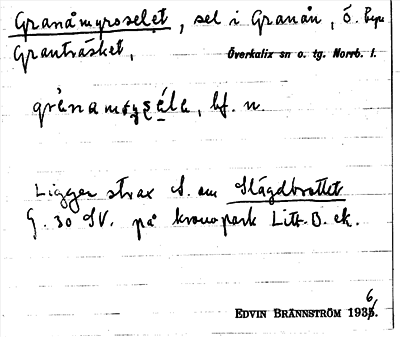 Granåmyroselet, sel i Granån, ö.
Granträsket,
Överkalix sn o. tg. Norrb. l.
bf. n.
Ligger strax S. om Slägdbrottet
G. 30 SV. på kronopark Litt. B. ek.
EDVIN BRÄNNSTRÖM 1936.